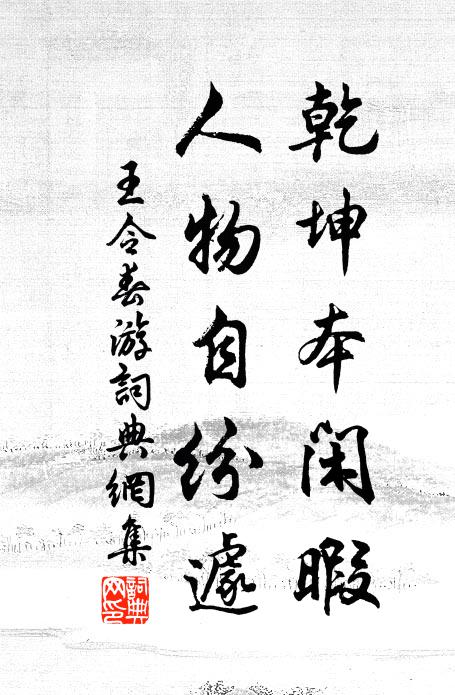 乾坤本閑暇
人物自紛遽
王令春游詞典網集
詞典网印